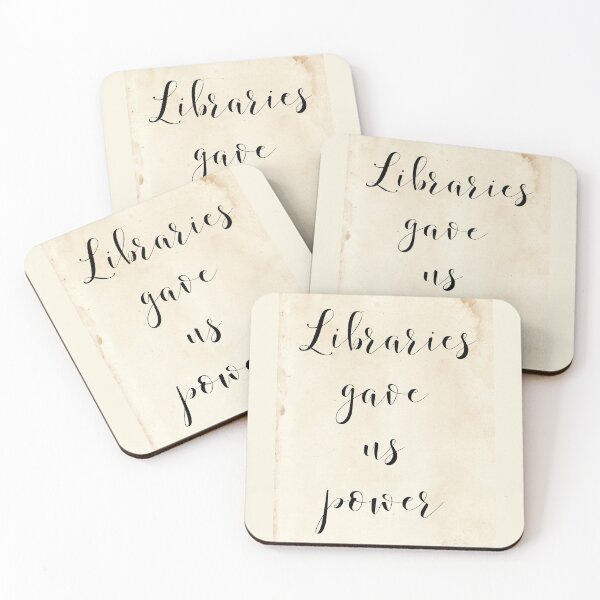 Libraries
gave
Libraries
gave
us
Libraries
gave
us
power
Libraries
gave
us
power